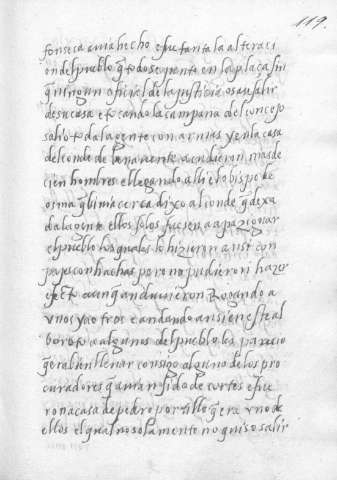 119.
fonseca avia hecho e fue tanta la alteraci
on del pueblo q̃ todo se puso en la plaça sin
q̃ ningun oficial de la justicia osau salir
de su casa e tocando la campana del concejo
salio toda la gente con armas y en la casa
del conde de benavente acudieron mas de
cien hombres e llegando alli el obispo de
osma q̃ lima cerca dixo al conde q̃ dexa
da la gente ellos solos fuesen a apaziguar
el pueblo los quales lo hizieron ansi con
pajes con hachas pero no pudieron hazer
efecto aunq̃ anduvieron Rogando a
vnos y a otros e andando ansi en este al
boroto a algunos del pueblo les parecio
q̃ era bien llevar consigo alguno de los pro
curadores q̃ avian sido de cortes e fue
ron a casa de pedro portillo q̃ era vno de
ellos el qual no solamente no quiso salir